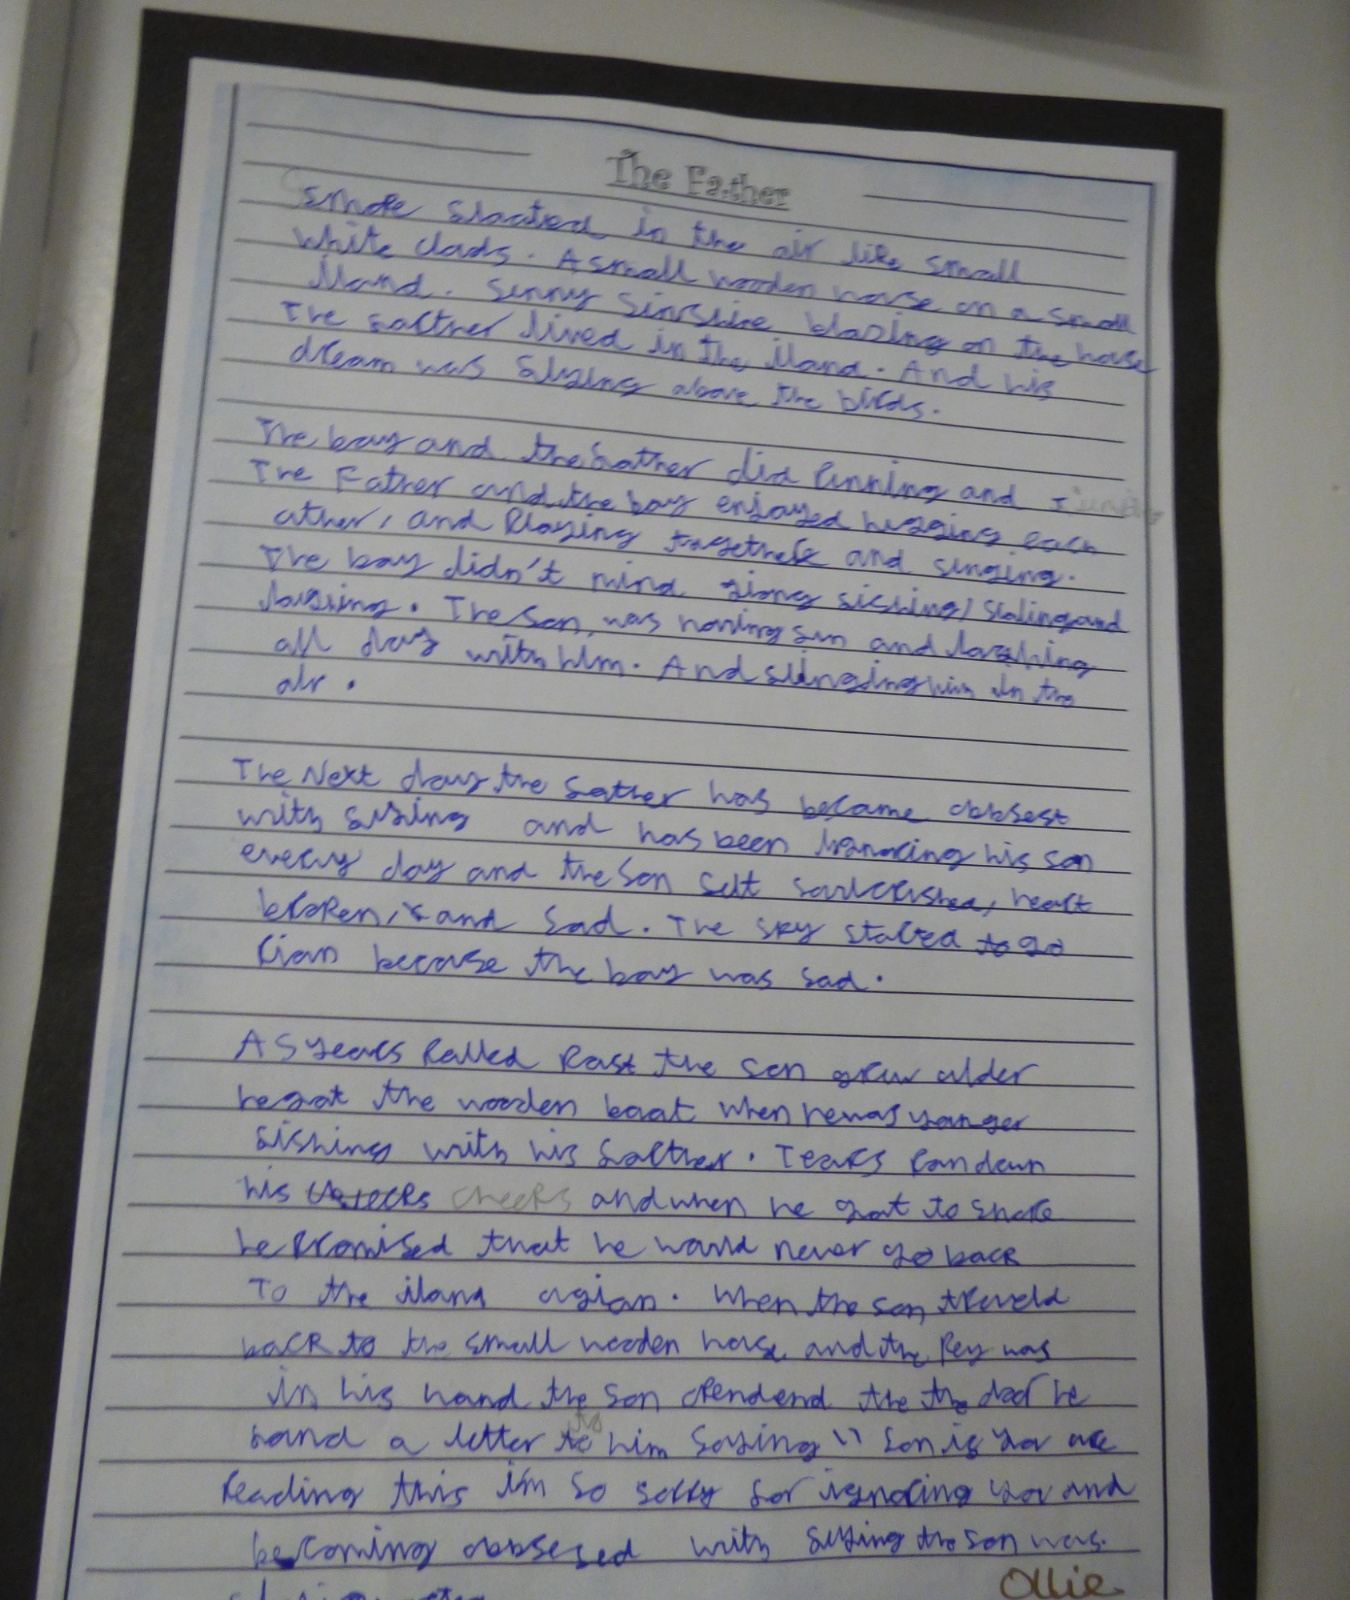 The Father
smoke sloated in the air like small
white clouds. A small wooden house on a small
iland. sunny sinshire blazing on the house
The father lived in the iland. And his
dream was flying above the birds.
The boy and the father did running and
The Father and the boy enjoyed hugging each
other, and Playing together and singing.
The boy didn't mind going fishing, and
The son was having fun and laughing
all day with him. And slinging him in the
air.
The Next day the father has became obbsest
with flying and has been ignoring his son
every day and the son felt soulcrushed, heart
broken, and sad. The sky started to go
rian because the boy was sad.
As years Rolled Past the son grew older
he got the wooden boat when he was yonger
fishing with his father. Tears ran down
his cheeks and when he got to shore
he Promised that he would never go back
To the iland agian. When the son treveld
back to the small wooden house and the key was
in his hand the son opendend the the door he
found a letter to him saying " son if you are
reading this i'm so sorry for ignoring you and
becoming obbsesed with flying the son was.
Ollie